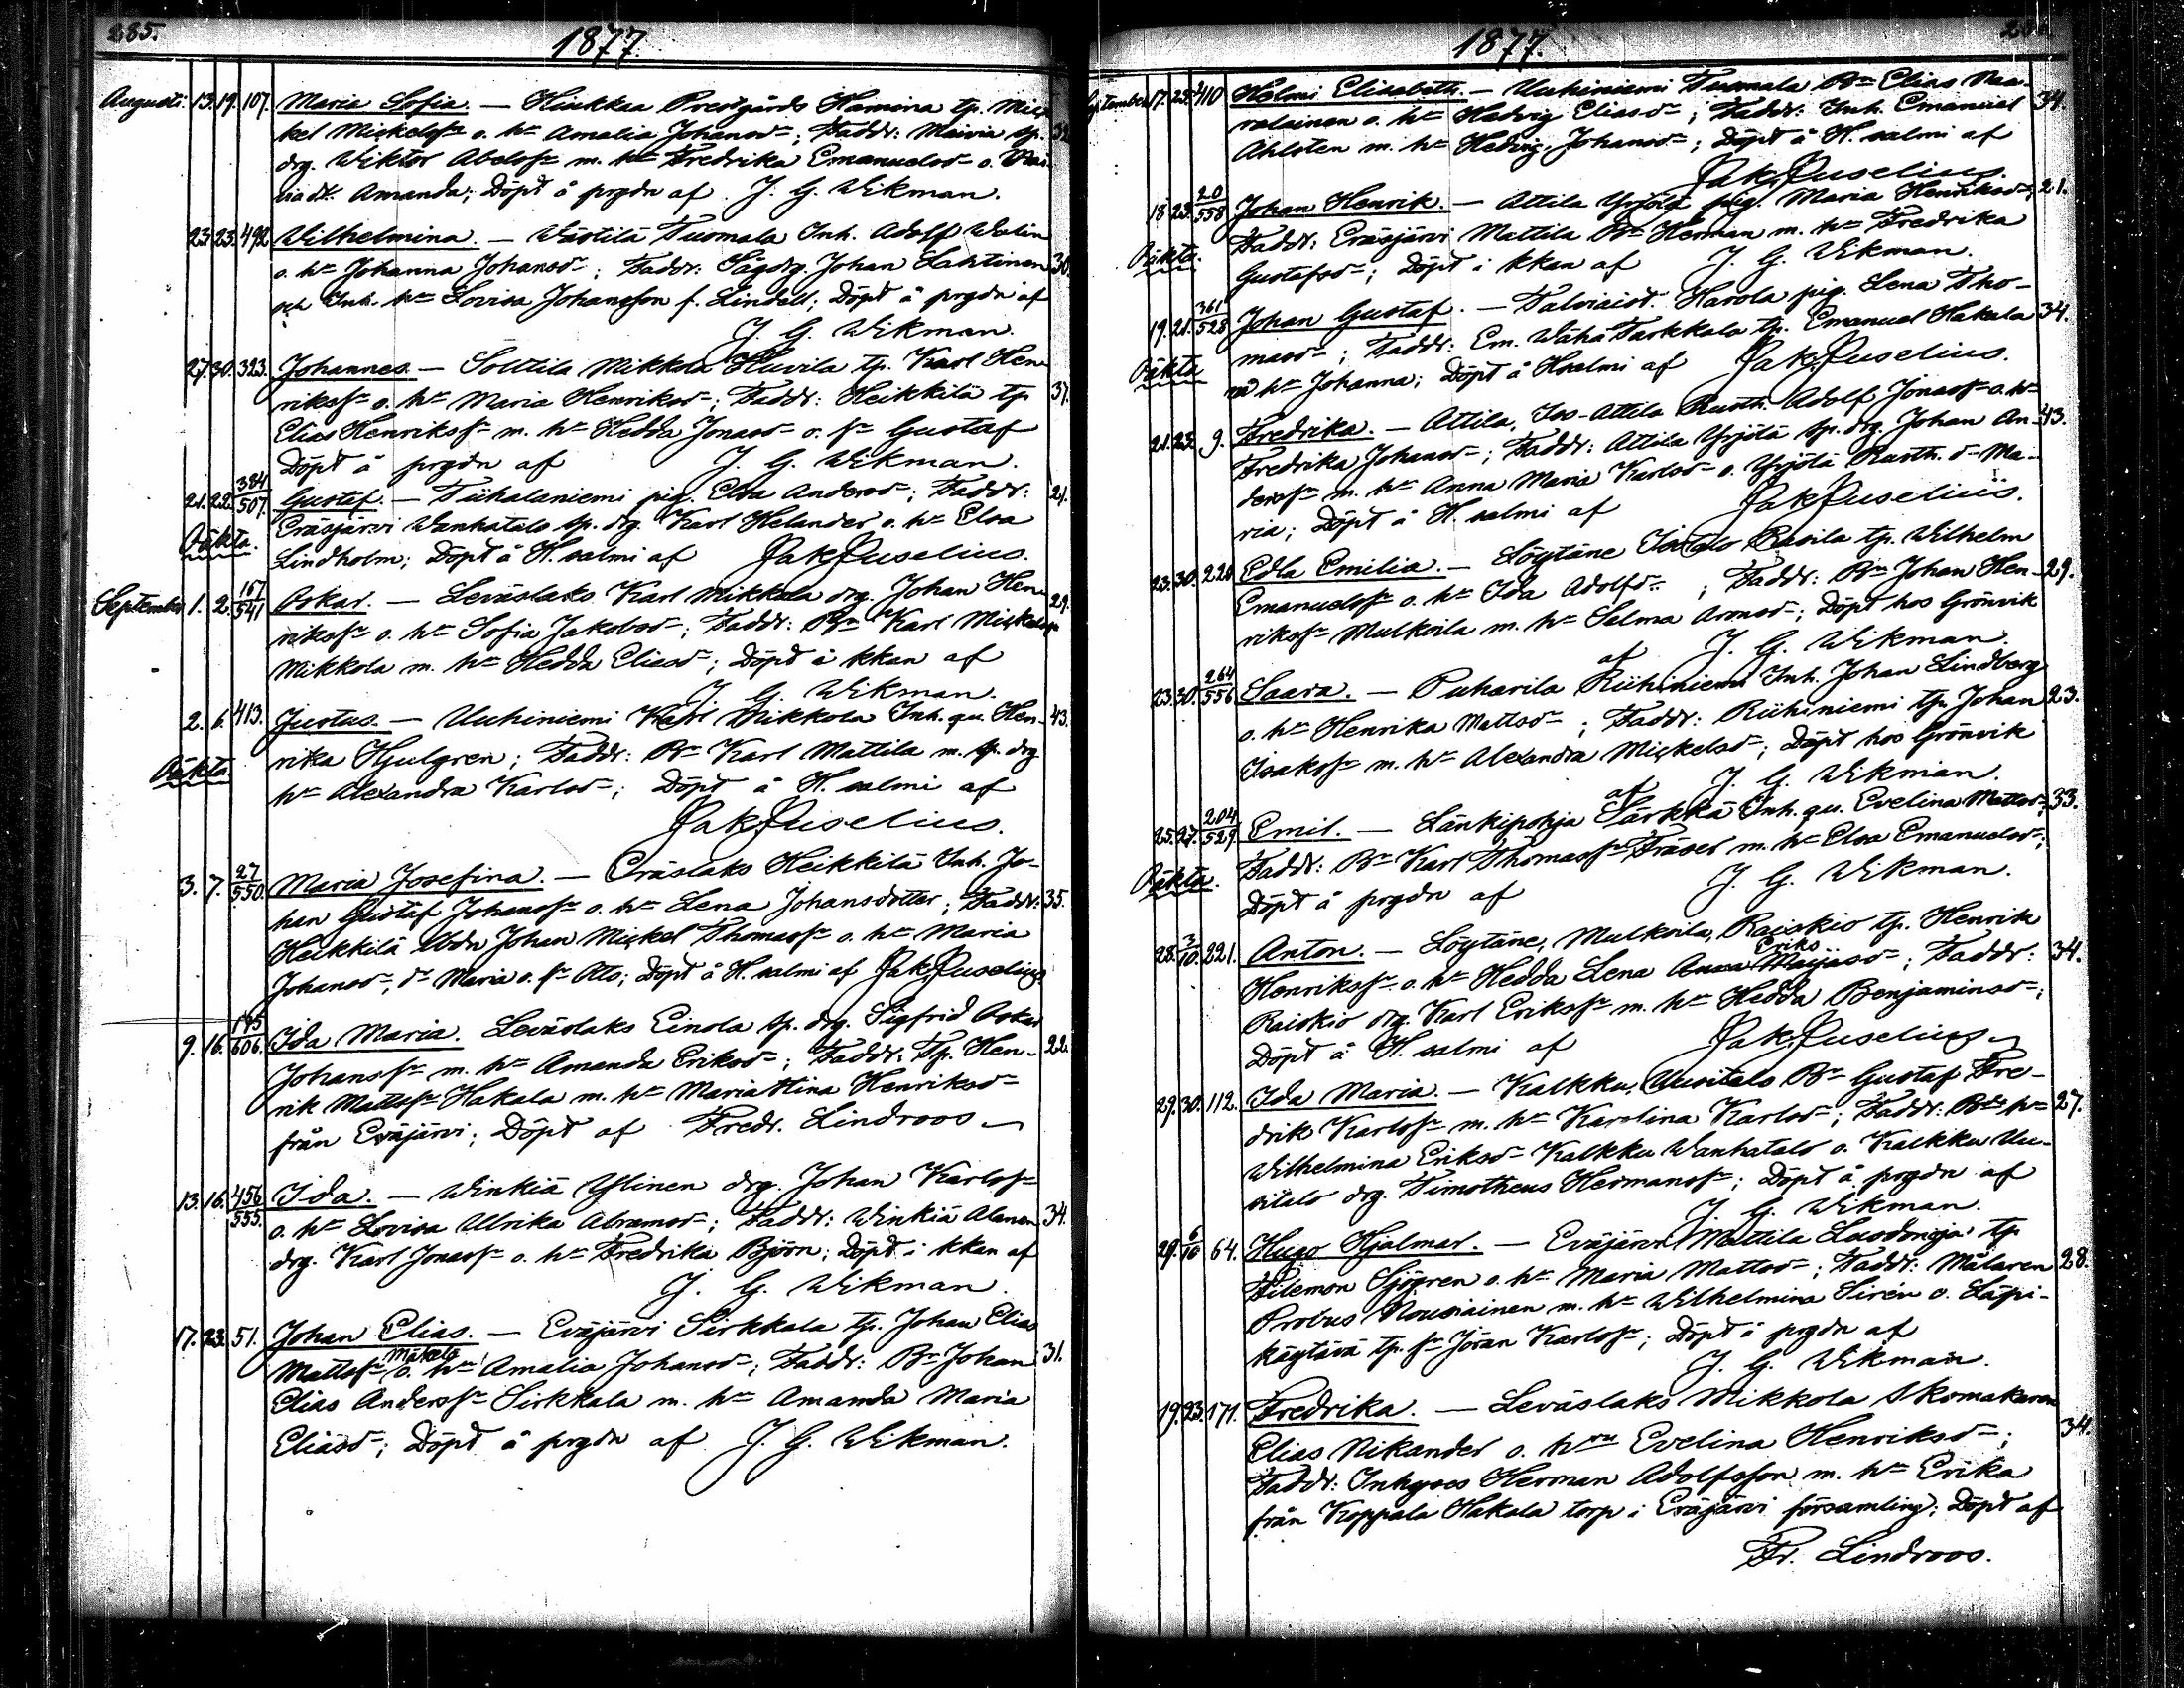 285.
1877.
Augusti. 13. 19. 107. Maria Sofia. — Hinkkea Prestgårds Hamina tp. Mic-
kel Mickelsſn o. hu Amalia Johansdr; Faddr: Maivia sp.
drg. Wiktor Abelsſn m. hu Fredrika Emanuelsdr o.
Amanda; Döpt å prgdn af J. G. Wikman.
23 23. 492 Wilhelmina. — Wästilä Tuomala Inh. Adolf Welin 36.
o. hu Johanna Johansdr; Faddr: Sågdrg. Johan Lahtinen
och Inh. hu Lovisa Johansson f. Lindell; Döpt å prgdn af
J. G. Wikman.
27. 30. 323. Johannes. — Solttila Mikkola Huvila tp. Karl Hen-
riksſn o. hu Maria Henriksdr; Faddr: Heikkilä tp. 37.
Elias Henriksſn m. hu Hedda Jonasdr o. sn Gustaf
Döpt å prgdn af J. G. Wikman.
21. 22. 384/507. Gustaf. — Tiihalaniemi pig. Elsa Andersdr; Faddr: 21.
Oäkta. Eräsjärvi Wanhatalo sp. drg. Karl Helander o. hu Elsa
Lindholm; Döpt å H. salmi af Jak. Juselius.
September 1. 2. 167/541 Oskar. — Leväslaks Karl Mikkola drg. Johan Hen- 29.
riksſn o. hu Sofia Jakobsdr; Faddr: Bn Karl Mickelsſn
Mikkola m. hu Hedda Eliasdr; Döpt i kkan af
J. G. Wikman.
2. 6. 413. Justus. — Uuhiniemi Karl Mikkola Inh. qu. Hen- 43.
Oäkta. rika Hjulgren; Faddr: Bn Karl Mattila m. sp. drg
hu Alexandra Karlsdr; Döpt å H. salmi af
Jak. Juselius.
3. 7. 27/550. Maria Josefina. — Eräslaks Heikkilä Inh. Jo-
han Gustaf Johansſn o. hu Lena Johansdotter; Faddr: 35.
Heikkilä Johan Mickel Thomasſn o. hu Maria
Johansdr, dr Maria o. sn Otto; Döpt å H. salmi af Jak. Juselius.
9. 16. 195/606. Ida Maria. Leväslaks Einola sp. drg. Sigfrid Oskar 22.
Johansſn m. hu Amanda Eriksdr; Faddr: Tp. Hen-
rik Mattsſn Hakala m. hu Maria Stina Henriksdr
från Eräjärvi; Döpt af Fredr. Lindroos
13. 16. 456/555. Ida. — Winkiä Ylinen drg. Johan Karlsſn
o. hu Lovisa Ulrika Abramsdr; Faddr: Winkiä Alanen 34.
drg. Karl Jonasſn o. hu Fredrika Björn; Döpt i kkan af
J. G. Wikman.
17. 23. 51. Johan Elias. — Eväjärvi Sirkkala tp. Johan Elias
Mattsſn Mäkelä o. hu Amalia Johansdr; Faddr: Bn Johan 31.
Elias Andersſn Sirkkala m. hu Amanda Maria
Eliasdr; Döpt å prgdn af J. G. Wikman.
1877.
September 17. 23. 410 Holmi Elisabeth. — Uuhiniemi Tuomala Bn Elias Naa- 34.
ralainen o. hu Hedvig Eliasdr; Faddr: Inh. Emanuel
Ahlsten m. hu Hedvig Johansdr; Döpt å H. salmi af
Jak. Juselius.
18 23. 20/558 Johan Henrik. — Attila Yrjölä pig. Maria Henriksdr; 21.
Oäkta. Faddr: Eräsjärvi Mattila Bn Herman m. hu Fredrika
Gustafsdr; Döpt i kkan af J. G. Wikman.
19. 21. 361/528 Johan Gustaf. — Talviaist. Harola pig. Lena Tho- 34.
Oäkta masdr; Faddr: Em. Wähä Tarkkala tp. Emanuel Hakala
md hu Johanna; Döpt å H. salmi af Jak. Juselius.
21. 23. 9. Fredrika. — Attila, Iso-Attila Rusth. Adolf Jonasſn o. hu 43.
Fredrika Johansdr; Faddr: Attila Yrjölä sp. drg. Johan An-
dersſn m. hu Anna Maria Karlsdr o. Yrjölä Rusth. dr Ma-
ria; Döpt å H. salmi af Jak. Juselius.
23. 30. 220 Edla Emilia. — Löytäne Isotalo Rasila tp. Wilhelm 29.
Emanuelsſn o. hu Ida Adolfsdr; Faddr: Bn Johan Hen-
riksſn Mulkoila m. hu Selma Aronsdr; Döpt hos Grönvik
af J. G. Wikman.
23. 30. 264/556 Saara. — Puharila Riihiniemi Inh. Johan Lindberg 23.
o. hu Henrika Mattsdr; Faddr: Riihiniemi tp. Johan
Isaksſn m. hu Alexandra Mickelsdr; Döpt hos Grönvik
af J. G. Wikman.
25. 27. 204/529. Emil. — Länkipohja Särkkä Inh. qu. Evelina Mattsdr; 33.
Oäkta. Faddr: Bn Karl Thomasſn Fräsei m. hu Elsa Emanuelsdr;
Döpt å prgdn af J. G. Wikman.
28. 3/10. 221. Anton. — Löytäne, Mulkoila, Raiskio tp. Henrik
Henriksſn o. hu Hedda Lena Eriks Anna Maijasdr; Faddr: 34.
Raiskio drg. Karl Eriksſn m. hu Hedda Benjaminsdr;
Döpt å H. salmi af Jak. Juselius
29. 30. 112. Ida Maria. — Kalkku, Uusitalo Bn Gustaf Fre- 27.
drik Karlsſn m. hu Karolina Karlsdr; Faddr: Bds hu
Wilhelmina Eriksdr Kalkku Wanhatalo o. Kalkku Uu-
sitalo drg. Timotheus Hermansſn; Döpt å prgdn af
J. G. Wikman.
29. 6/10 64. Hugo Hjalmar. — Eväjärvi Mattila tp. 28.
Filemon Sjögren o. hu Maria Mattsdr; Faddr: Målaren
Probus Nousiainen m. hu Wilhelmina Sirén o. Läpi-
käytävä tp. sn Jöran Karlsſn; Döpt å prgdn af
J. G. Wikman.
19. 23. 171. Fredrika. — Leväslaks Mikkola Skomakaren 34.
Elias Nikander o. hru Evelina Henriksdr;
Faddr: Inhyses Herman Adolfsson m. hu Erika
från Koppala Hakala torp i Eräjärvi församling; Döpt af
Fr. Lindroos.